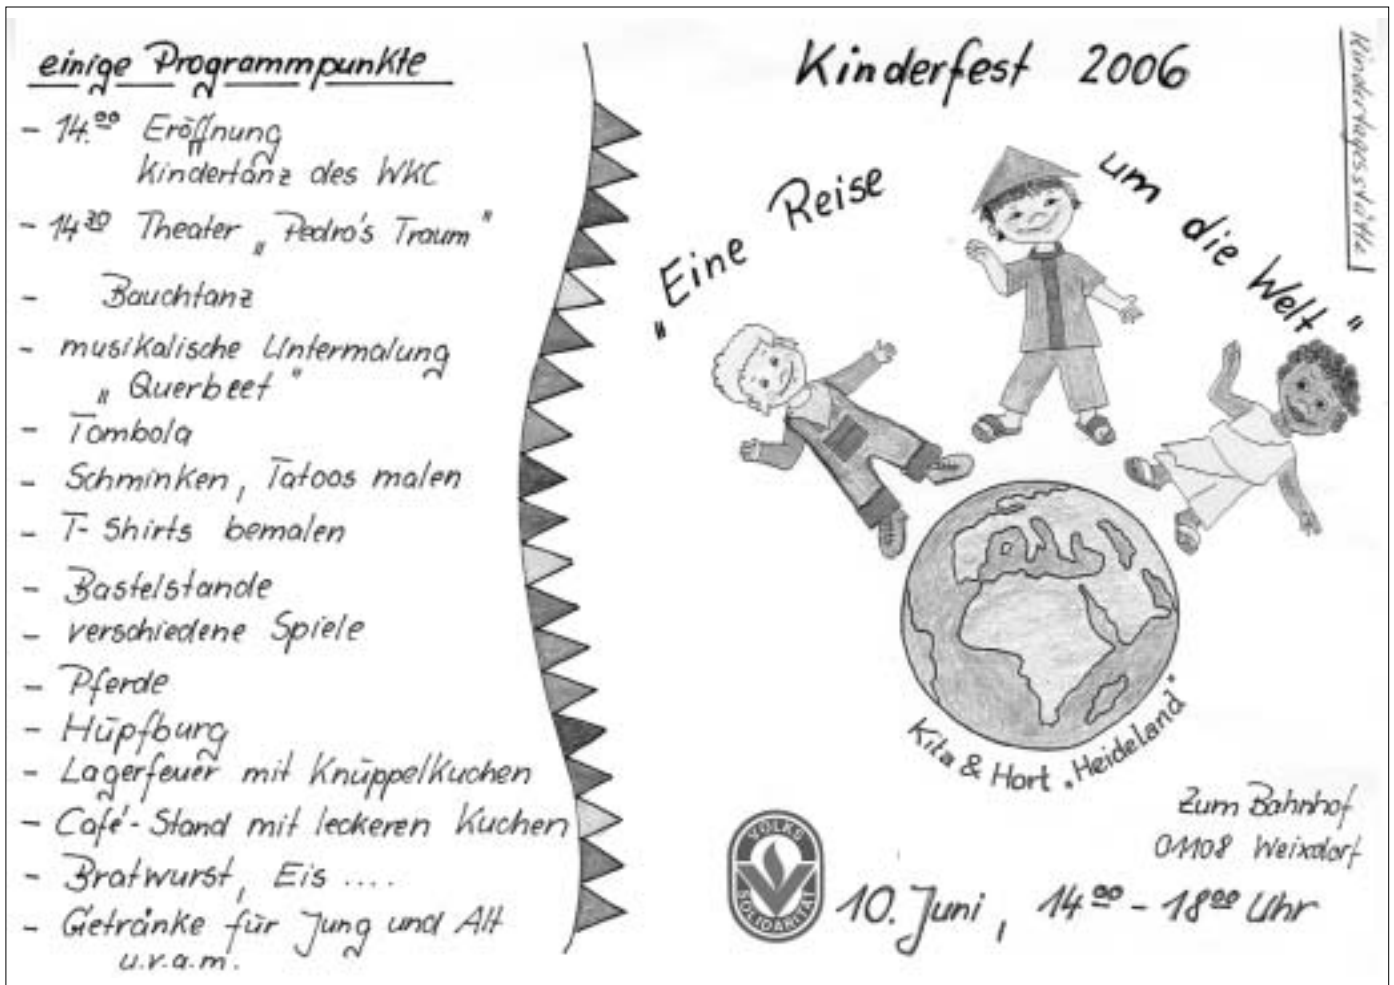 einige Programmpunkte
- 14.00 Eröffnung
Kindertanz des WKC
- 14 30 Theater „Pedro's Traum"
- Bauchtanz
- musikalische Untermalung
„Querbeet"
- Tombola
- Schminken, Tatoos malen
- T-Shirts bemalen
- Bastelstände
- verschiedene Spiele
- Pferde
- Hüpfburg
- Lagerfeuer mit Knüppelkuchen
- Café-Stand mit leckeren Kuchen
- Bratwurst, Eis ....
- Getränke für Jung und Alt
u.v.a.m.
Kinderfest 2006
Kindertagesstätte
„Eine Reise um die Welt"
Kita & Hort „Heideland"
Zum Bahnhof
01108 Weixdorf
VOLKS
SOLIDARITÄT
10. Juni, 14 00 - 18 00 Uhr